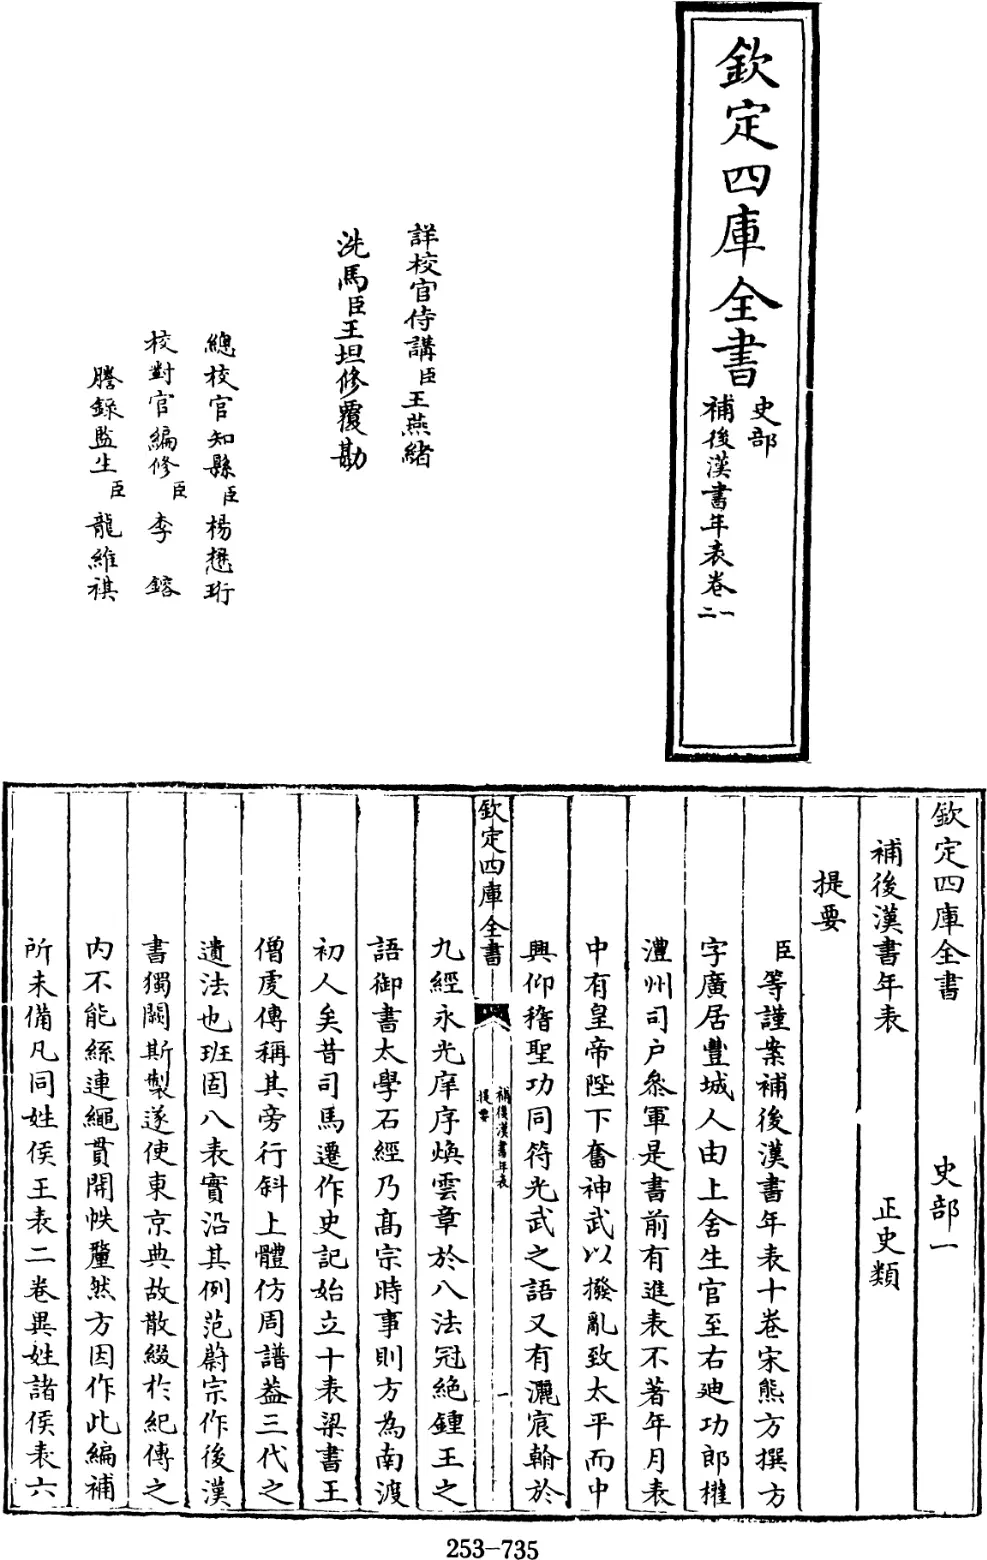 欽定四庫全書
史部
補後漢書年表卷一
二
詳校官侍講臣王燕緒
洗馬臣王坦修覆勘
總校官知縣臣楊懋珩
校對官編修臣李鎔
謄錄監生臣龍維祺
欽定四庫全書 史部一
補後漢書年表 正史類
提要
臣等謹案補後漢書年表十卷宋熊方撰方
字廣居豐城人由上舍生官至右迪功郎權
澧州司户叅軍是書前有進表不著年月表
中有皇帝陛下奮神武以撥亂致太平而中
興仰稽聖功同符光武之語又有灑宸翰於
欽定四庫全書
補後漢書年表
提要
一
九經永光庠序煥雲章於八法冠絶鍾王之
語御書太學石經乃髙宗時事則方為南渡
初人矣昔司馬遷作史記始立十表梁書王
僧䖍傳稱其旁行斜上體仿周譜葢三代之
遺法也班固八表實沿其例范蔚宗作後漢
書獨闕斯製遂使東京典故散綴於紀傳之
内不能絲連繩貫開帙釐然方因作此編補
所未備凡同姓侯王表二卷異姓諸侯表六
253-735